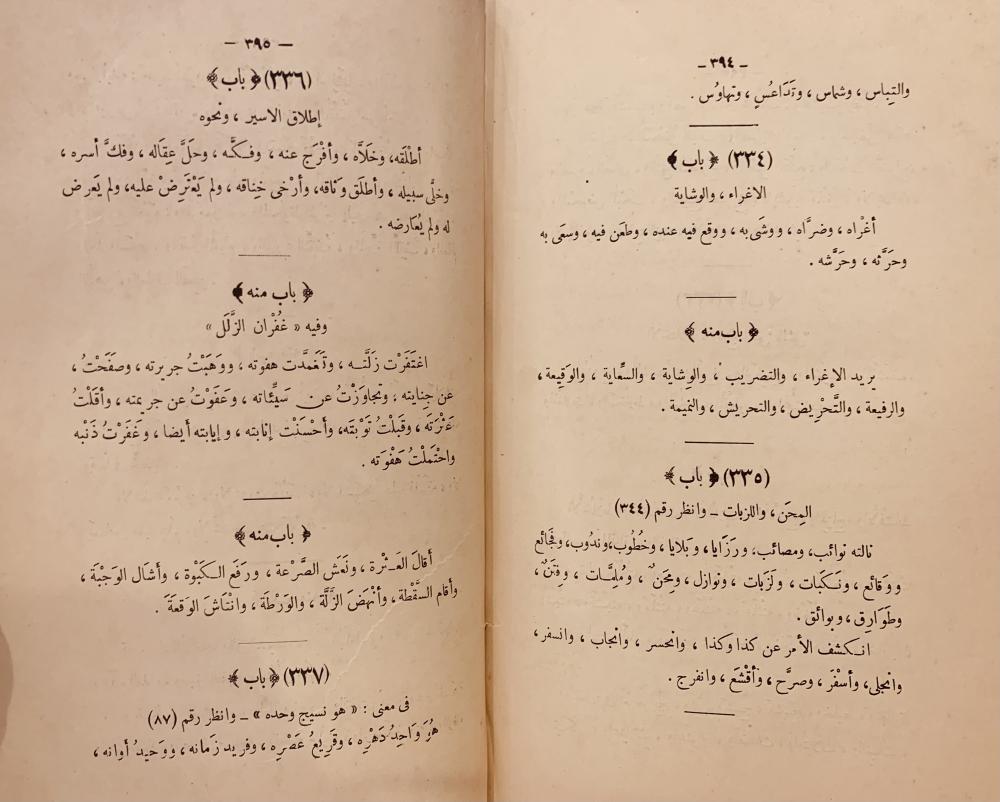 – ٣٩٤ –
والتِباس ، وشماس ، وتَدَاعُسٍ ، وتهاوُس .
(٣٣٤) ﴿ باب ﴾
الاغراء ، والوشاية
أغْراه ، وضرَّاه ، ووشَى به ، ووقع فيه عنده ، وطعَن فيه ، وسعَى به
وحَرَّثه ، وحَرَّشه .
﴿ باب منه ﴾
يريد الإغراء ، والتضريب ، والوِشاية ، والسِّعاية ، والوَقِيعة ،
والرفيعة ، والتَّحْرِيض ، والتحريش ، والنميمة .
(٣٣٥) ﴿ باب ﴾
المِحَن ، واللزبات ــ وانظر رقم (٣٤٤)
نالته نوائب، ومصائب، ورَزَايا ، وبَلايا ، وخُطُوب، وندُوب، وفجَائع
ووقائع ، ونَكَبات ، ولَزَبات ، ونوازل ، ومِحَنٌ ، ومُلِمَّات ، وفِتَنٌ ،
وطَوَارِق ، وبوائق .
انكشف الأمر عن كذا وكذا ، وانحسر ، وانجاب ، وانسفر ،
وانجلى، وأسْفَرَ ، وصرَّح ، وأقْشَعَ ، وانفرج .
– ٣٩٥ –
(٣٣٦) ﴿ باب ﴾
إطلاق الاسير ، ونحوه
أطْلَقه، وخَلَاَّه ، وأفْرَج عنه ، وفكَّه ، وحلَّ عِقَاله ، وفكَّ أسره ،
وخلَّى سبيله ، وأطلَق وَثاقه، وأرْخى خِناقه ، ولم يَعْتَرِضْ عليه، ولم يَعرض
له ولم يُعَارضه .
﴿ باب منه ﴾
وفيه « غُفْران الزَّلَل »
اغتَفَرْت زَلَّتَه ، وتَغَمَّدت هفوته ، ووَهَبْتُ جريرته ، وصفَحْتُ ،
عن جِنايته ، وتجاوَزْتُ عن سَيِّئاته ، وعَفَوْتُ عن جريمته ، وأقَلْتُ
عَثْرَته ، وقَبلْتُ تَوْبَته، وأحْسَنْت إنابته ، وإيابته أيضا ، وغَفَرْتُ ذَنْبه
واحْتَملْتُ هَفْوَته .
﴿ باب منه ﴾
أقالَ العَثْرة ، ونَعَش الصَّرْعة ، ورفَع الكَبْوة ، وأشال الوَجْبَة ،
وأقام السَّقْطة ، وأنْهَضَ الزَّلَّة ، والوَرْطَة ، وانْتَاشَ الوَقعَةَ .
(٣٣٧) ﴿ باب ﴾
فى معنى : « هو نسيج وحده » ــ وانظر رقم (٨٧)
هُوَ وَاحِدُ دَهْرِه ، وقَرِيعُ عَصْرِه ، وفريد زمانه ، ووَحِيدُ أوانه ،